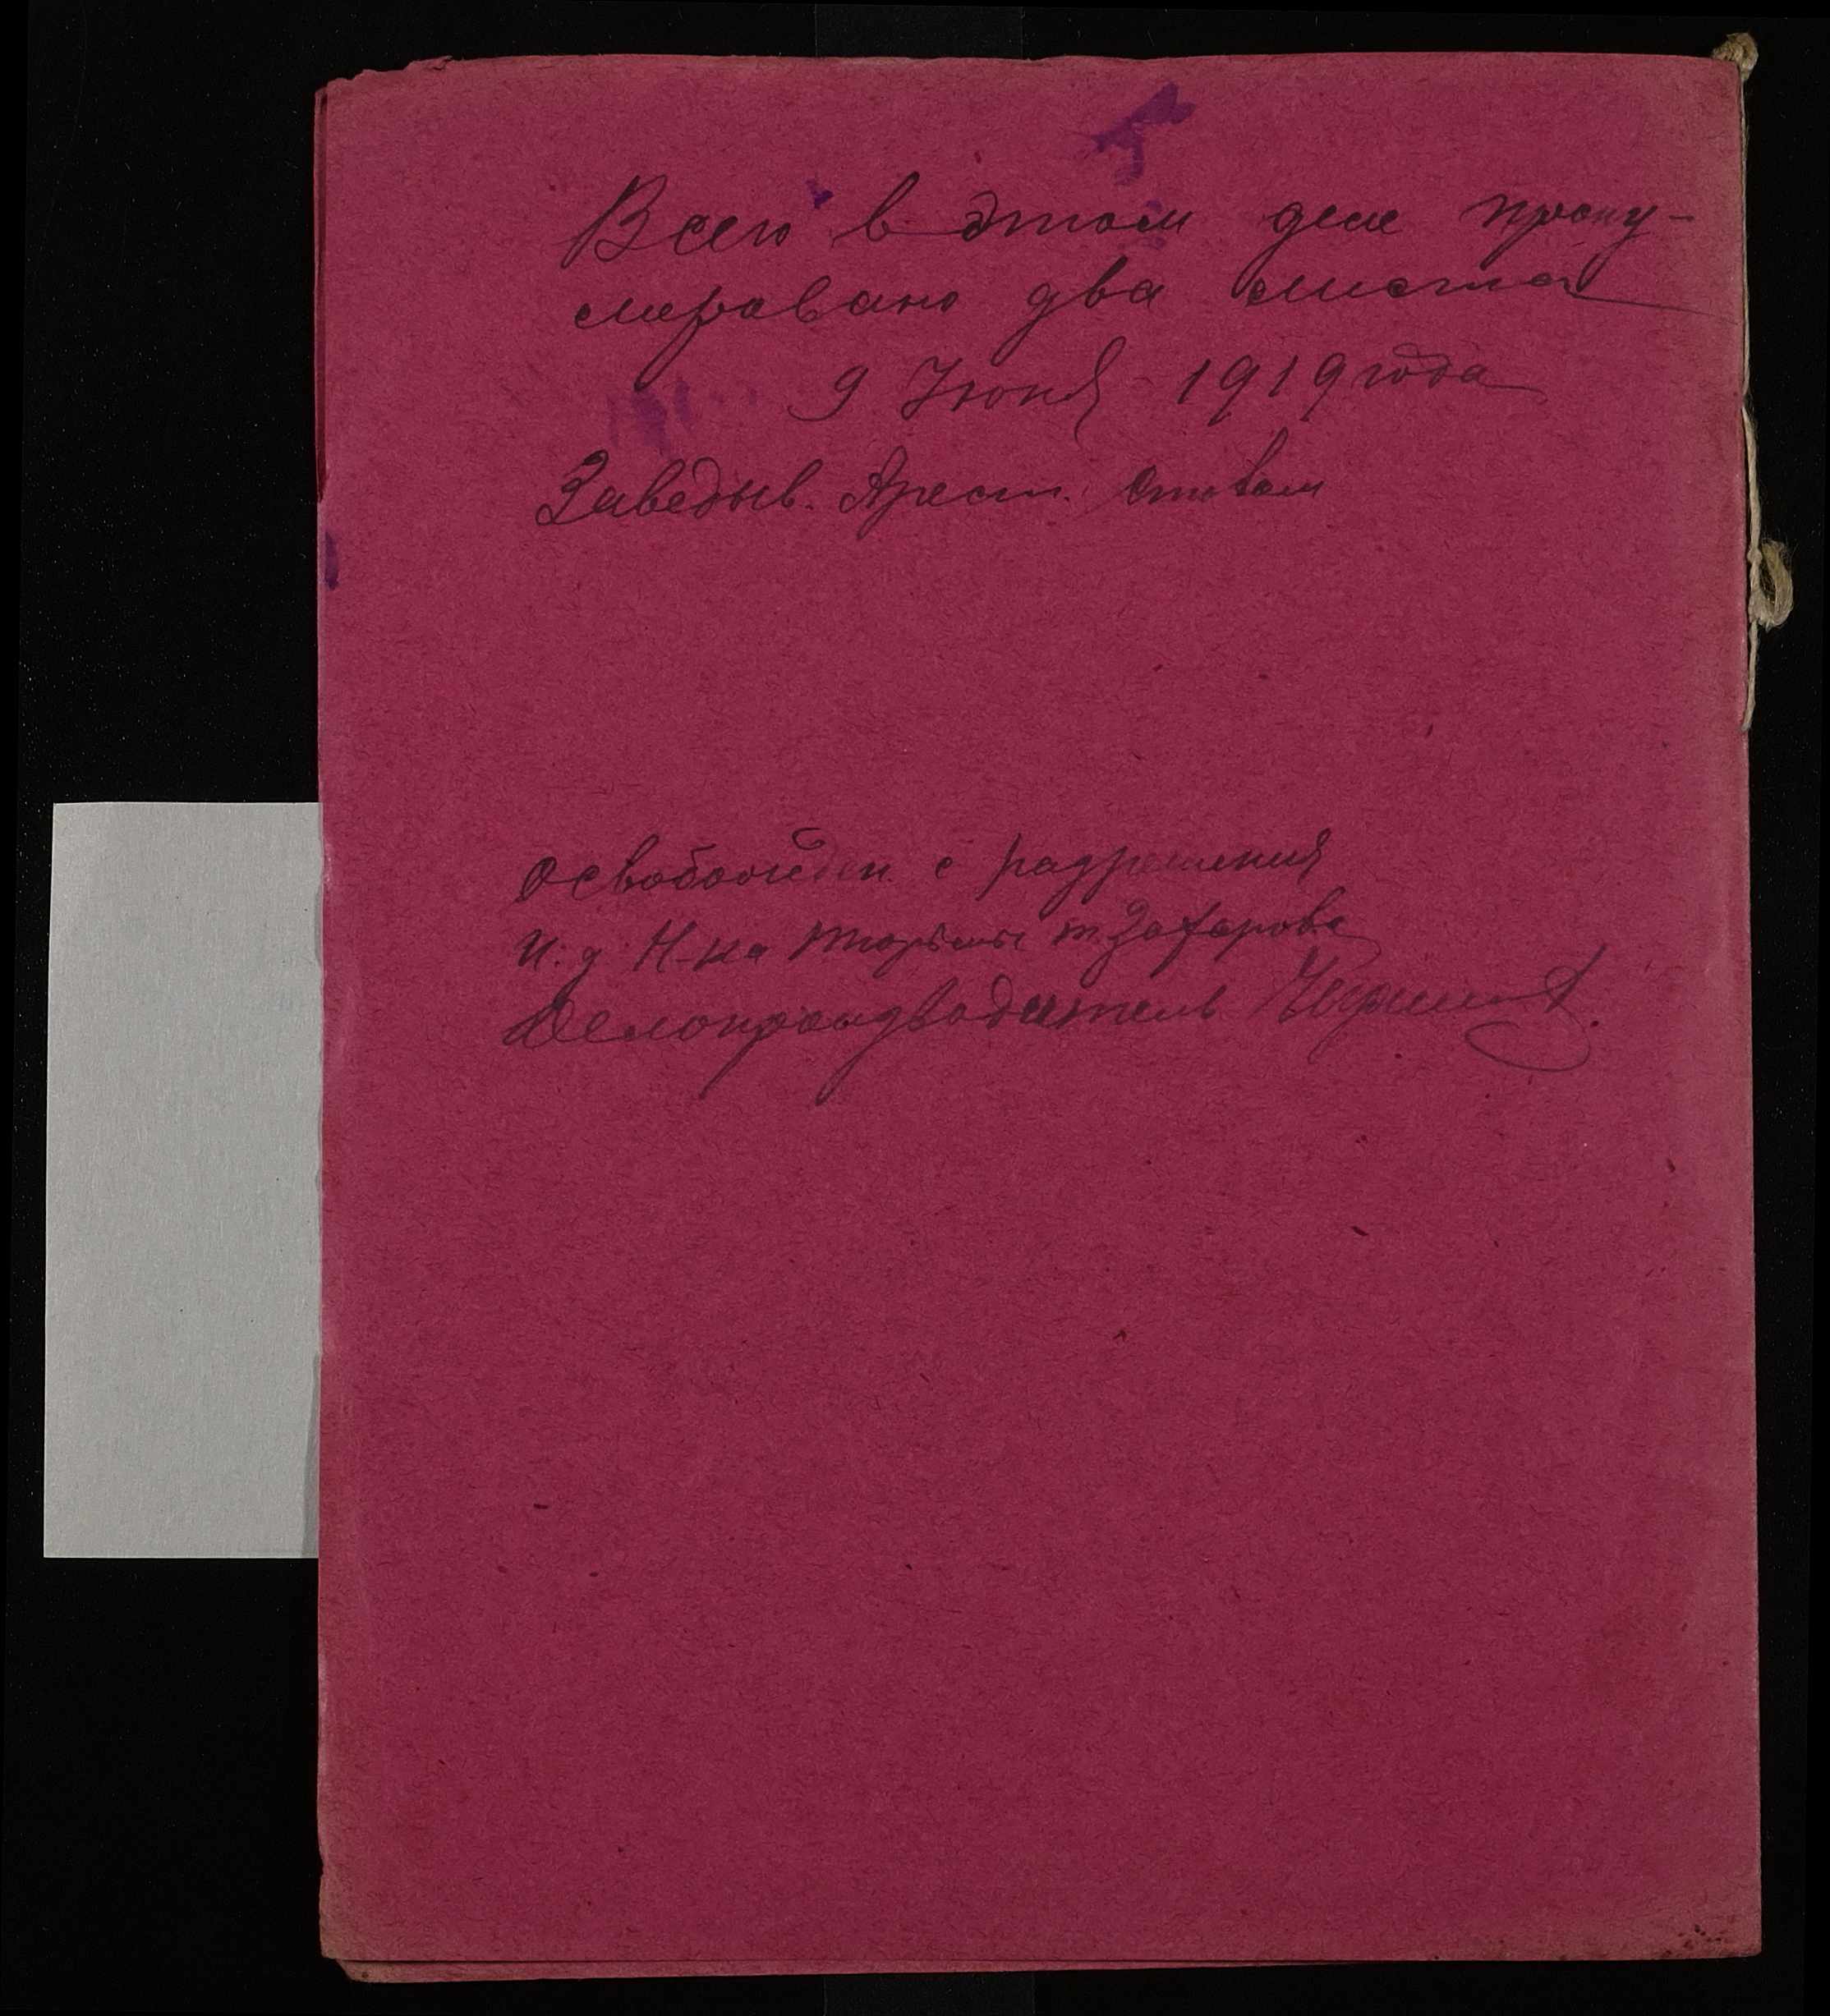 Всего в этом деле прону-
меровано два листа
9 Июня 1919 года
Заведыв. Арест. Столом
Освобожден с разрешения
И. д Н-ка тюрьмы т. Захарова
Делопроизводитель